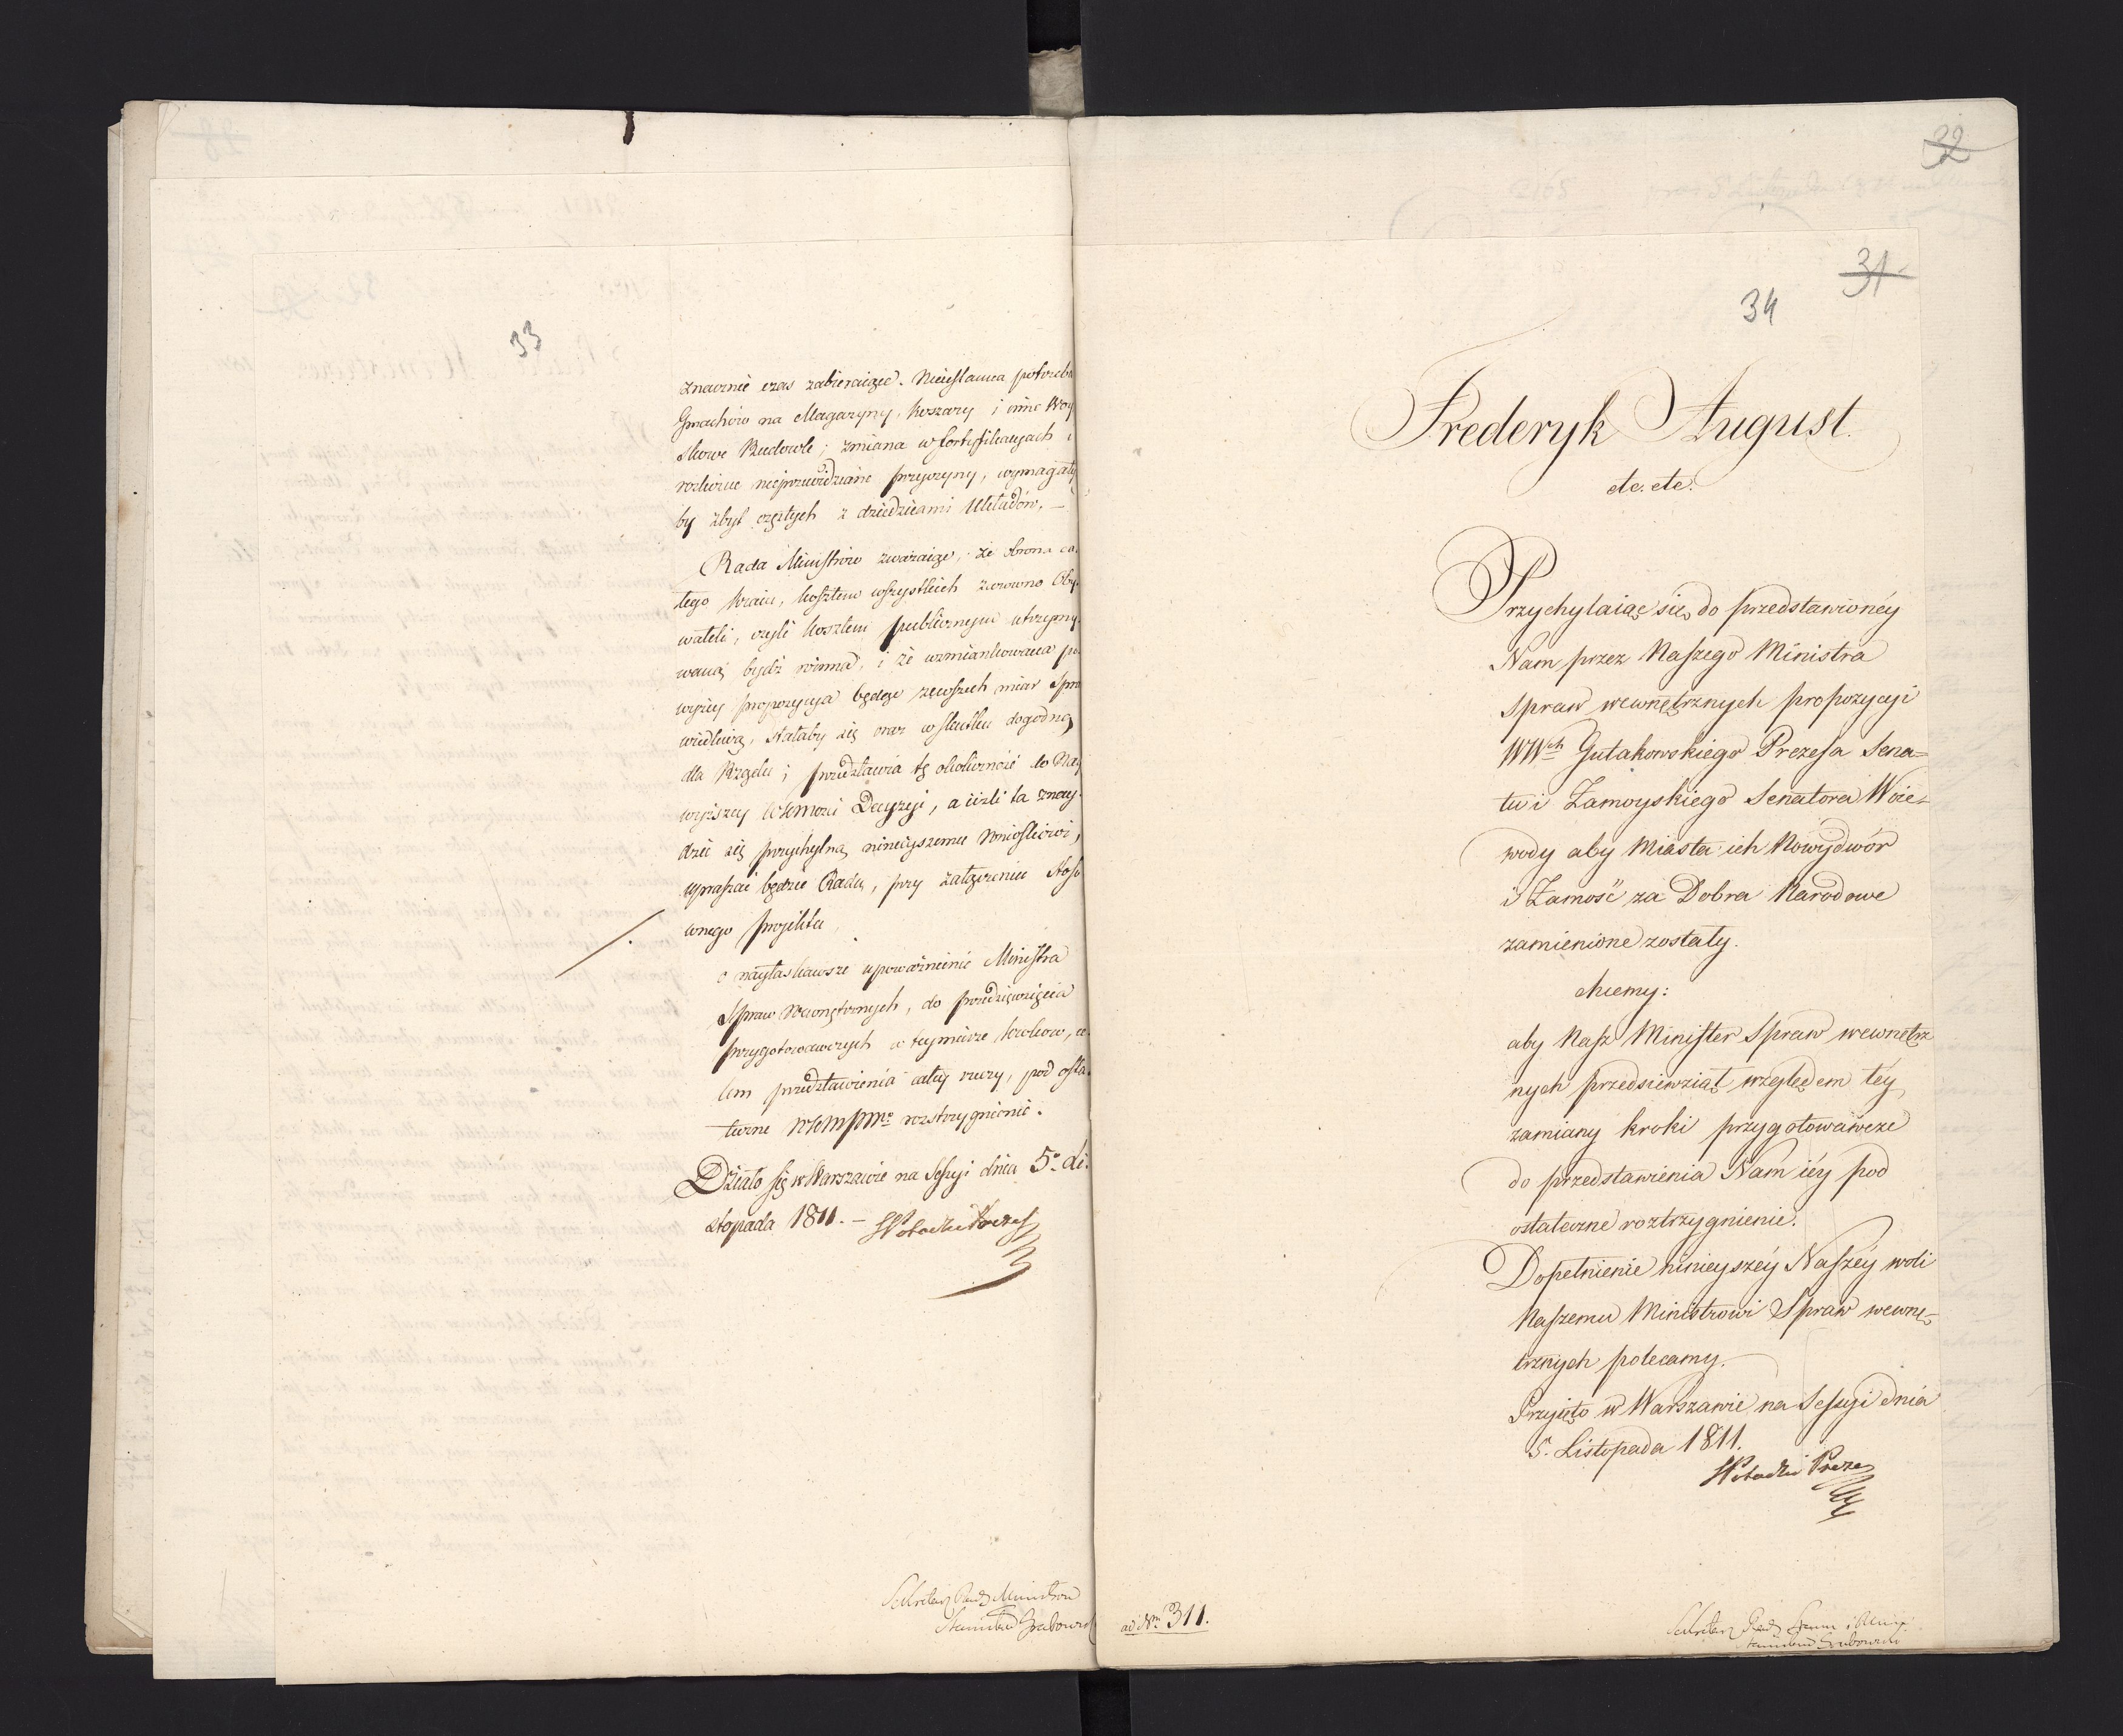 33
znacznie czas zabieraiące. Nieustanna potrzeba
Gmachów na Magazyny, Koszary i inne Woy
skowe Budowle; zmiana w fortyfikacyach i
rozliczne nieprzewidziane przyczyny, wymagały
by zbyt częstych z dziedzicami Układów. —
Rada Ministrów zważaiąc, że obrona ca-
łego kraiu, kosztem wszystkich zarowno Oby-
wateli, czyli kosztem publicznym utrzymy-
waną bydź winna, i że wzmiankowana po-
wyżey propozycya będąc zewszech miar spra
wiedliwą, stałaby się oraz w skutku dogodną
dla Rządu; przedstawia tę okoliczność do Nay
wyższey WKMości Decyzyi, a ieżli ta znay-
dzie się przychylną ninieyszemu Wnioskowi,
upraszać będzie Rada, przy załączeniu stoso
wnego projektu
o nayłaskawsze upoważnienie Ministra
Spraw Wewnętrznych, do przedsięwzięcia
przygotowawczych w tey mierze kroków, ce-
lem przedstawienia całey rzeczy, pod osta-
teczne WKMPMo rozstrzygnienie.
Działo się w Warszawie na Sessyi dnia 5o Li-
stopada 1811. — SPotocki Prezes
Sekretarz Rady Ministrow
Stanisław Grabowski
32
31
34
Frederyk August.
etc. etc.
Przychylaiąc się do przedstawionéy
Nam przez Naszego Ministra
Spraw wewnętrznych propozycyi
WWch Gutakowskiego Prezesa Sena=
tu i Zamoyskiego Senatora Woie-
wody aby Miasta ich Nowydwór
i Zamość za Dobra Narodowe
zamienione zostały.
chcemy:
aby Nasz Minister Spraw wewnętrz
nych przedsiewziął względem téy
zamiany kroki przygotowawcze
do przedstawienia Nam iéy pod
ostateczne roztrzygnienie.
Dopełnienie ninieyszéy Naszéy woli
Naszemu Ministrowi Spraw wewnę=
trznych polecamy.
Przyięto w Warszawie na Sessyi dnia
5. Listopada 1811.
SPotocki Prezes
ad Nm 311.
Sekretarz Rady Stanu i Minis.
Stanisław Grabowski